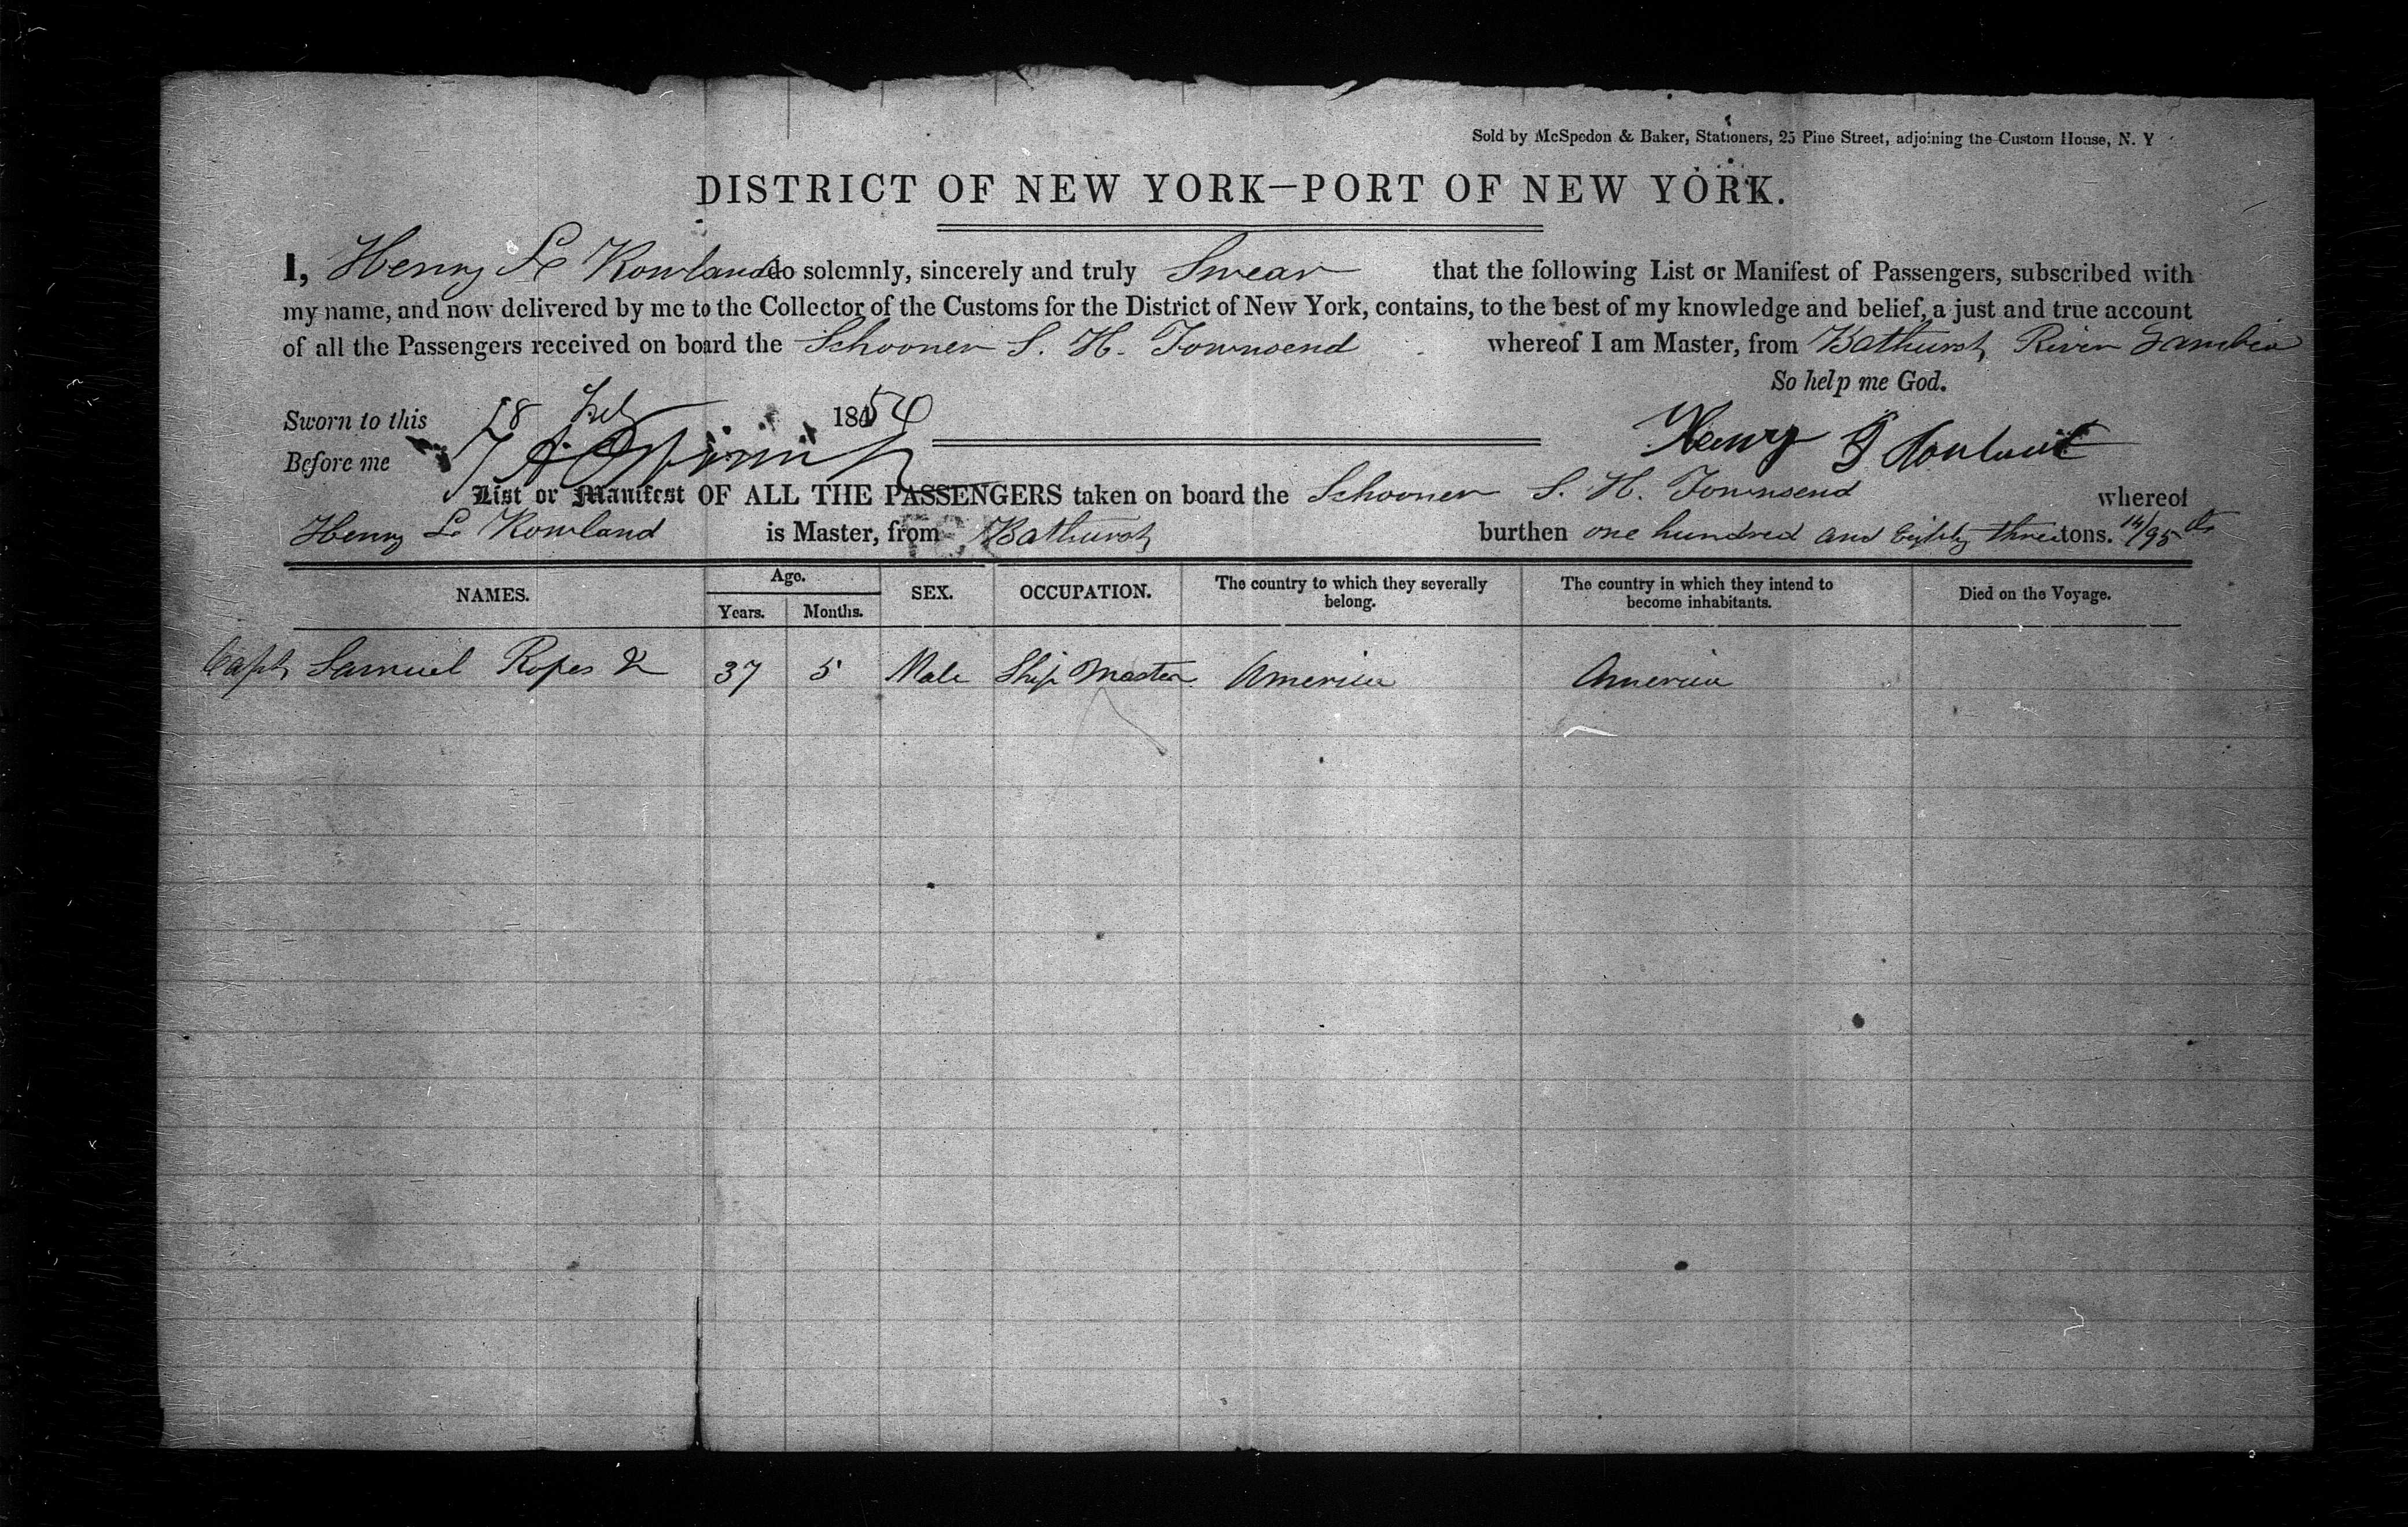 Sold by McSpedon & Baker, Stationers, 25 Pine Street, adjoining the Custom House, N. Y
DISTRICT OF NEW YORK—PORT OF NEW YORK.
I, Henry L Rowland do solemnly, sincerely and truly Swear that the following List or Manifest of Passengers, subscribed with
my name, and now delivered by me to the Collector of the Customs for the District of New York, contains, to the best of my knowledge and belief, a just and true account
of all the Passengers received on board the Schooner S. H. Townsend whereof I am Master, from Bathurst River Gambia
So help me God.
Sworn to this 18 Feb 1850
Before me Henry L Rowland
List or Manifest OF ALL THE PASSENGERS taken on board the Schooner S. H. Townsend whereof
Henry L Rowland is Master, from Bathurst burthen one hundred and Eighty three tons. 14/95 ths
NAMES. Age. Years. Months. SEX. OCCUPATION. The country to which they severally belong. The country in which they intend to become inhabitants. Died on the Voyage.
Capt Samuel Ropes 37 5 Male Ship Master America America